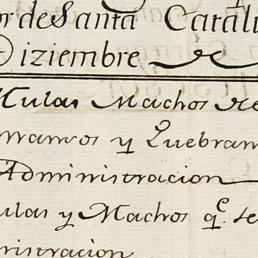 or de Santa Catal
Diziembre
Mulas Machos Re
rrancos y Quebran
Administracion
ulas y Machos q.e se
nistracion